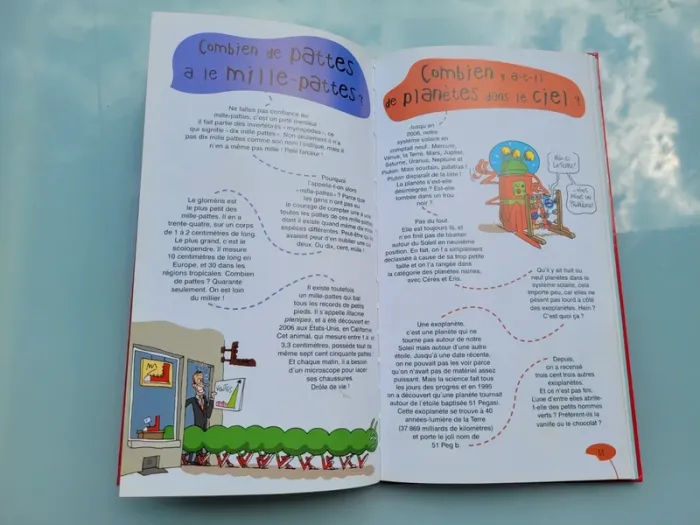 Combien de pattes
a le mille-pattes ?
Ne faites pas confiance au
mille-pattes, c'est un petit menteur
Il fait partie des invertébrés « myriapodes », ce
qui signifie « dix mille pattes ». Non seulement il n'a
pas dix mille pattes comme son nom l'indique, mais il
n'en a même pas mille ! Petit farceur !
Pourquoi
l'appelle-t-on alors
« mille-pattes » ? Parce que
les gens n'ont pas eu
le courage de compter une à une
toutes les pattes de ces mille-pattes
dont il existe quand même dix mille
espèces différentes. Peut-être qu'ils
avaient peur d'en oublier une ou
deux. Ou dix, cent, mille !
Le gloméris est
le plus petit des
mille-pattes. Il en a
trente-quatre, sur un corps
de 1 à 2 centimètres de long.
Le plus grand, c'est le
scolopendre. Il mesure
10 centimètres de long en
Europe, et 30 dans les
régions tropicales. Combien
de pattes ? Quarante
seulement. On est loin
du millier !
Il existe toutefois
un mille-pattes qui bat
tous les records de petits
pieds. Il s'appelle Illacme
plenipes, et a été découvert en
2006 aux États-Unis, en Californie.
Cet animal, qui mesure entre 1 et
3,3 centimètres, possède tout de
même sept cent cinquante pattes !
Et chaque matin, il a besoin
d'un microscope pour lacer
ses chaussures.
Drôle de vie !
Combien y a-t-il
de planètes dans le ciel ?
Jusqu'en
2006, notre
système solaire en
comptait neuf. Mercure,
Vénus, la Terre, Mars, Jupiter,
Saturne, Uranus, Neptune et
Pluton. Mais soudain, patatras !
Pluton disparaît de la liste !
La planète s'est-elle
désintégrée ? Est-elle
tombée dans un trou
noir ?
Pas du tout.
Elle est toujours là, et
n'en finit pas de tourner
autour du Soleil en neuvième
position. En fait, on l'a simplement
déclassée à cause de sa trop petite
taille et on l'a rangée dans
la catégorie des planètes naines,
avec Cérès et Éris.
Qu'il y ait huit ou
neuf planètes dans le
système solaire, cela
importe peu, car elles ne
pèsent pas lourd à côté
des exoplanètes. Hein ?
C'est quoi ça ?
Une exoplanète,
c'est une planète qui ne
tourne pas autour de notre
Soleil mais autour d'une autre
étoile. Jusqu'à une date récente,
on ne pouvait pas les voir parce
qu'on n'avait pas de matériel assez
puissant. Mais la science fait tous
les jours des progrès et en 1995
on a découvert qu'une planète tournait
autour de l'étoile baptisée 51 Pegasi.
Cette exoplanète se trouve à 40
années-lumière de la Terre
(37 869 milliards de kilomètres)
et porte le joli nom de
51 Peg b
Depuis,
on a recensé
trois cent trois autres
exoplanètes.
Et ce n'est pas fini.
L'une d'entre elles abrite-
t-elle des petits hommes
verts ? Préfèrent-ils la
vanille ou le chocolat ?